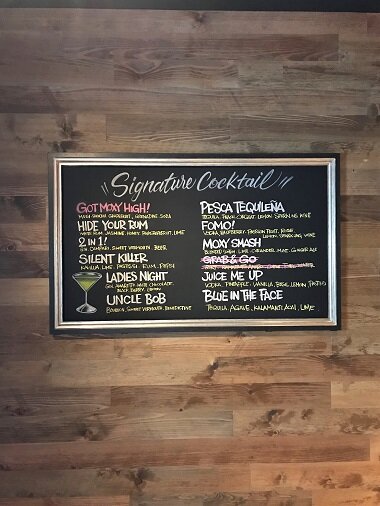 Signature Cocktail
GOT MOXY HIGH!
GRENADINE, SODA
HIDE YOUR RUM
WHITE RUM, JASMINE HONEY, LIME
2 IN 1!
GIN, CAMPARI, SWEET VERMOUTH, BEER
SILENT KILLER
KAHLUA, LIME, PASTIS 51, RUM, PEPSI
LADIES NIGHT
GIN, AMARETTO, WHITE CHOCOLATE,
BLACK BERRY, LEMON
UNCLE BOB
BOURBON, SWEET VERMOUTH, BENEDICTINE
PESCA TEQUILEÑA
TEQUILA, PEACH, ORGEAT, LEMON, SPARKLING WINE
FOMO!
VODKA, RASPBERRY, PASSION FRUIT, ROSE
LEMON, SPARKLING WINE
MOXY SMASH
BLENDED LIME, CARAMEL, MINT, GINGER ALE
GRAB & GO
JUICE ME UP
VODKA, PINEAPPLE, VANILLA, BASIL, LEMON, PASTIS
BLUE IN THE FACE
TEQUILA, AGAVE, KALAMANTI, ACAI, LIME